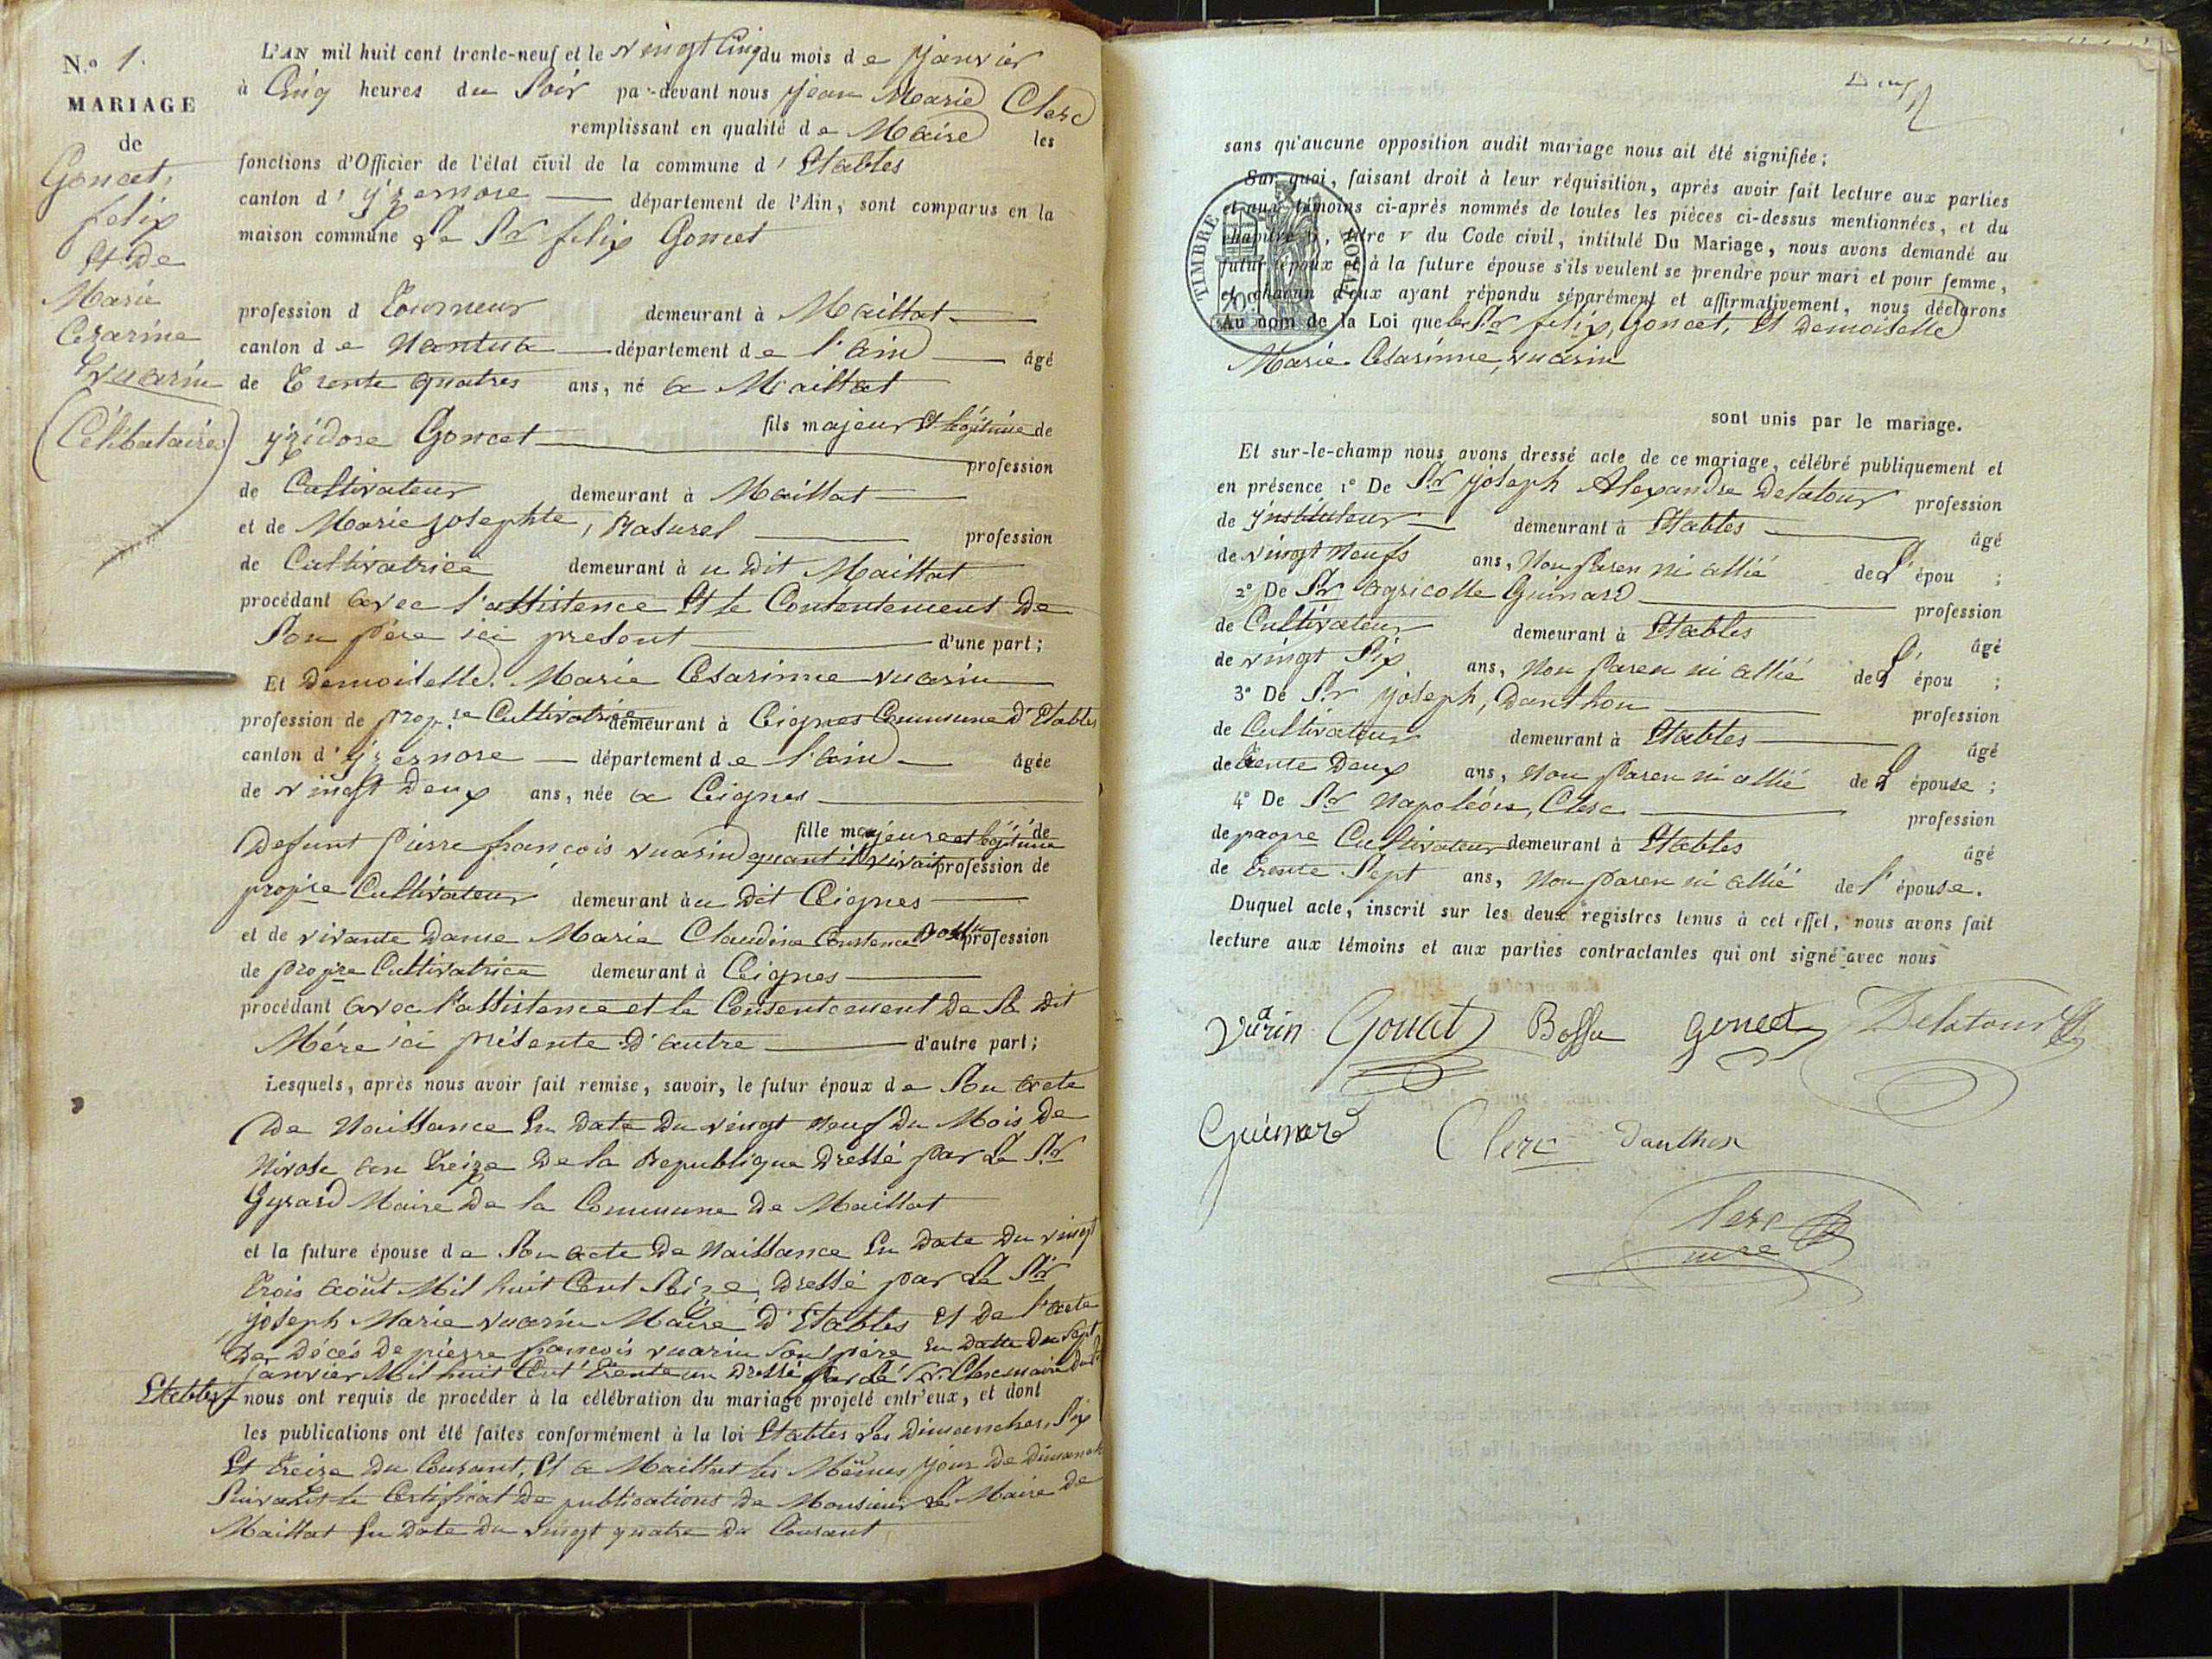 N.º 1.
MARIAGE
de
Goncet,
felix
Et De
Marie
Cesarine
Vuarin
(Célibataires)
L'AN mil huit cent trente-neuf et le vingt Cinq du mois de Janvier
à Cinq heures du Soir par-devant nous Jean Marie Clerc
remplissant en qualité de Maire les
fonctions d'Officier de l'état civil de la commune d'Etables
canton d'yzernore département de l'Ain, sont comparus en la
maison commune Le Sr felix Goncet
profession d Tourneur demeurant à Maillat
canton de Nantua département de l'ain âgé
de Trente quatres ans, né a Maillat
fils majeur Et légitime de
yzidore Goncet profession
de Cultivateur demeurant à Maillat
et de Marie josephte, Ravurel profession
de Cultivatrice demeurant à u Dit Maillat
procédant avec l'assistence Et le Consentement De
Son père ici present d'une part;
Et Demoiselle Marie Cesarinne vuarin
profession de propre Cultivatrice demeurant à Ceignes Commune D'Etables
canton d'yzernore département de l'ain âgée
de vingt Deux ans, née a Ceignes
fille majeure et légitime de
Defunt Pierre françois vuarin quant il vivait profession de
propre Cultivateur demeurant àu Dit Ceignes
et de vivante Dame Marie Claudine Constence Bossu profession
de propre Cultivatrice demeurant à Ceignes
procédant avec l'assistence et le Consentement De Sa Dit
Mére ici présente D'autre d'autre part;
Lesquels, après nous avoir fait remise, savoir, le futur époux de Son acte
De Naissance En Date Du vingt Neuf Du Mois De
Nivose an Treize De la Republique Dressé par Le Sr
Gyrard Maire De la Commune De Maillat
et la future épouse de Son acte De Naissance En Date Du vingt
Trois août Mil huit Cent Seize, Dressé par Le Sr
joseph Marie vuarin Maire D'Etables Et De l'acte
De Décés De pierre françois vuarin Son père En Datte Du Sept
janvier Mil huit Cent Trente un Dressé par Le Sr Clerc maire Du Dt
Etables nous ont requis de procéder à la célébration du mariage projeté entr'eux, et dont
les publications ont été faites conformément à la loi Etables Les Dimanches Six
Et Treize Du Courant, Et a Maillat les Mêmes jour De Dimanche
Suivant le Certificat De publications De Monsieur Le Maire De
Maillat En Date Du vingt quatre Du Courant
Deux
sans qu'aucune opposition audit mariage nous ait été signifiée;
Sur quoi, faisant droit à leur réquisition, après avoir fait lecture aux parties
et aux témoins ci-après nommés de toutes les pièces ci-dessus mentionnées, et du
chapitre VI, titre V du Code civil, intitulé Du Mariage, nous avons demandé au
futur époux et à la future épouse s'ils veulent se prendre pour mari et pour femme,
et chacun d'eux ayant répondu séparément et affirmativement, nous déclarons
Au nom de la Loi que les Sr felix, Goncet, Et Demoiselle
Marie Cesarinne, vuarin
TIMBRE ROYAL
sont unis par le mariage.
Et sur-le-champ nous avons dressé acte de ce mariage, célébré publiquement et
en présence 1º De Sr joseph Alexandre Delatour profession
de ynstituteur demeurant à Etables âgé
de vingt Neufs ans, Non Paren ni allié de L' épou ;
2º De Sr agricolle Guinard profession
de Cultivateur demeurant à Etables âgé
de vingt Six ans, Non Paren ni allié de L' épou ;
3º De Sr joseph, Danthon profession
de Cultivateur demeurant à Etables âgé
de Trente Deux ans, Non Paren ni allié de L' épouse ;
4º De Sr Napoléon, Clerc profession
de propre Cultivateur demeurant à Etables âgé
de Trente Sept ans, Non Paren ni allié de l'épouse.
Duquel acte, inscrit sur les deux registres tenus à cet effet, nous avons fait
lecture aux témoins et aux parties contractantes qui ont signé avec nous
Vuarin Goncet Bossu goncet Delatour
Guinard Clerc danthon
Clerc
maire